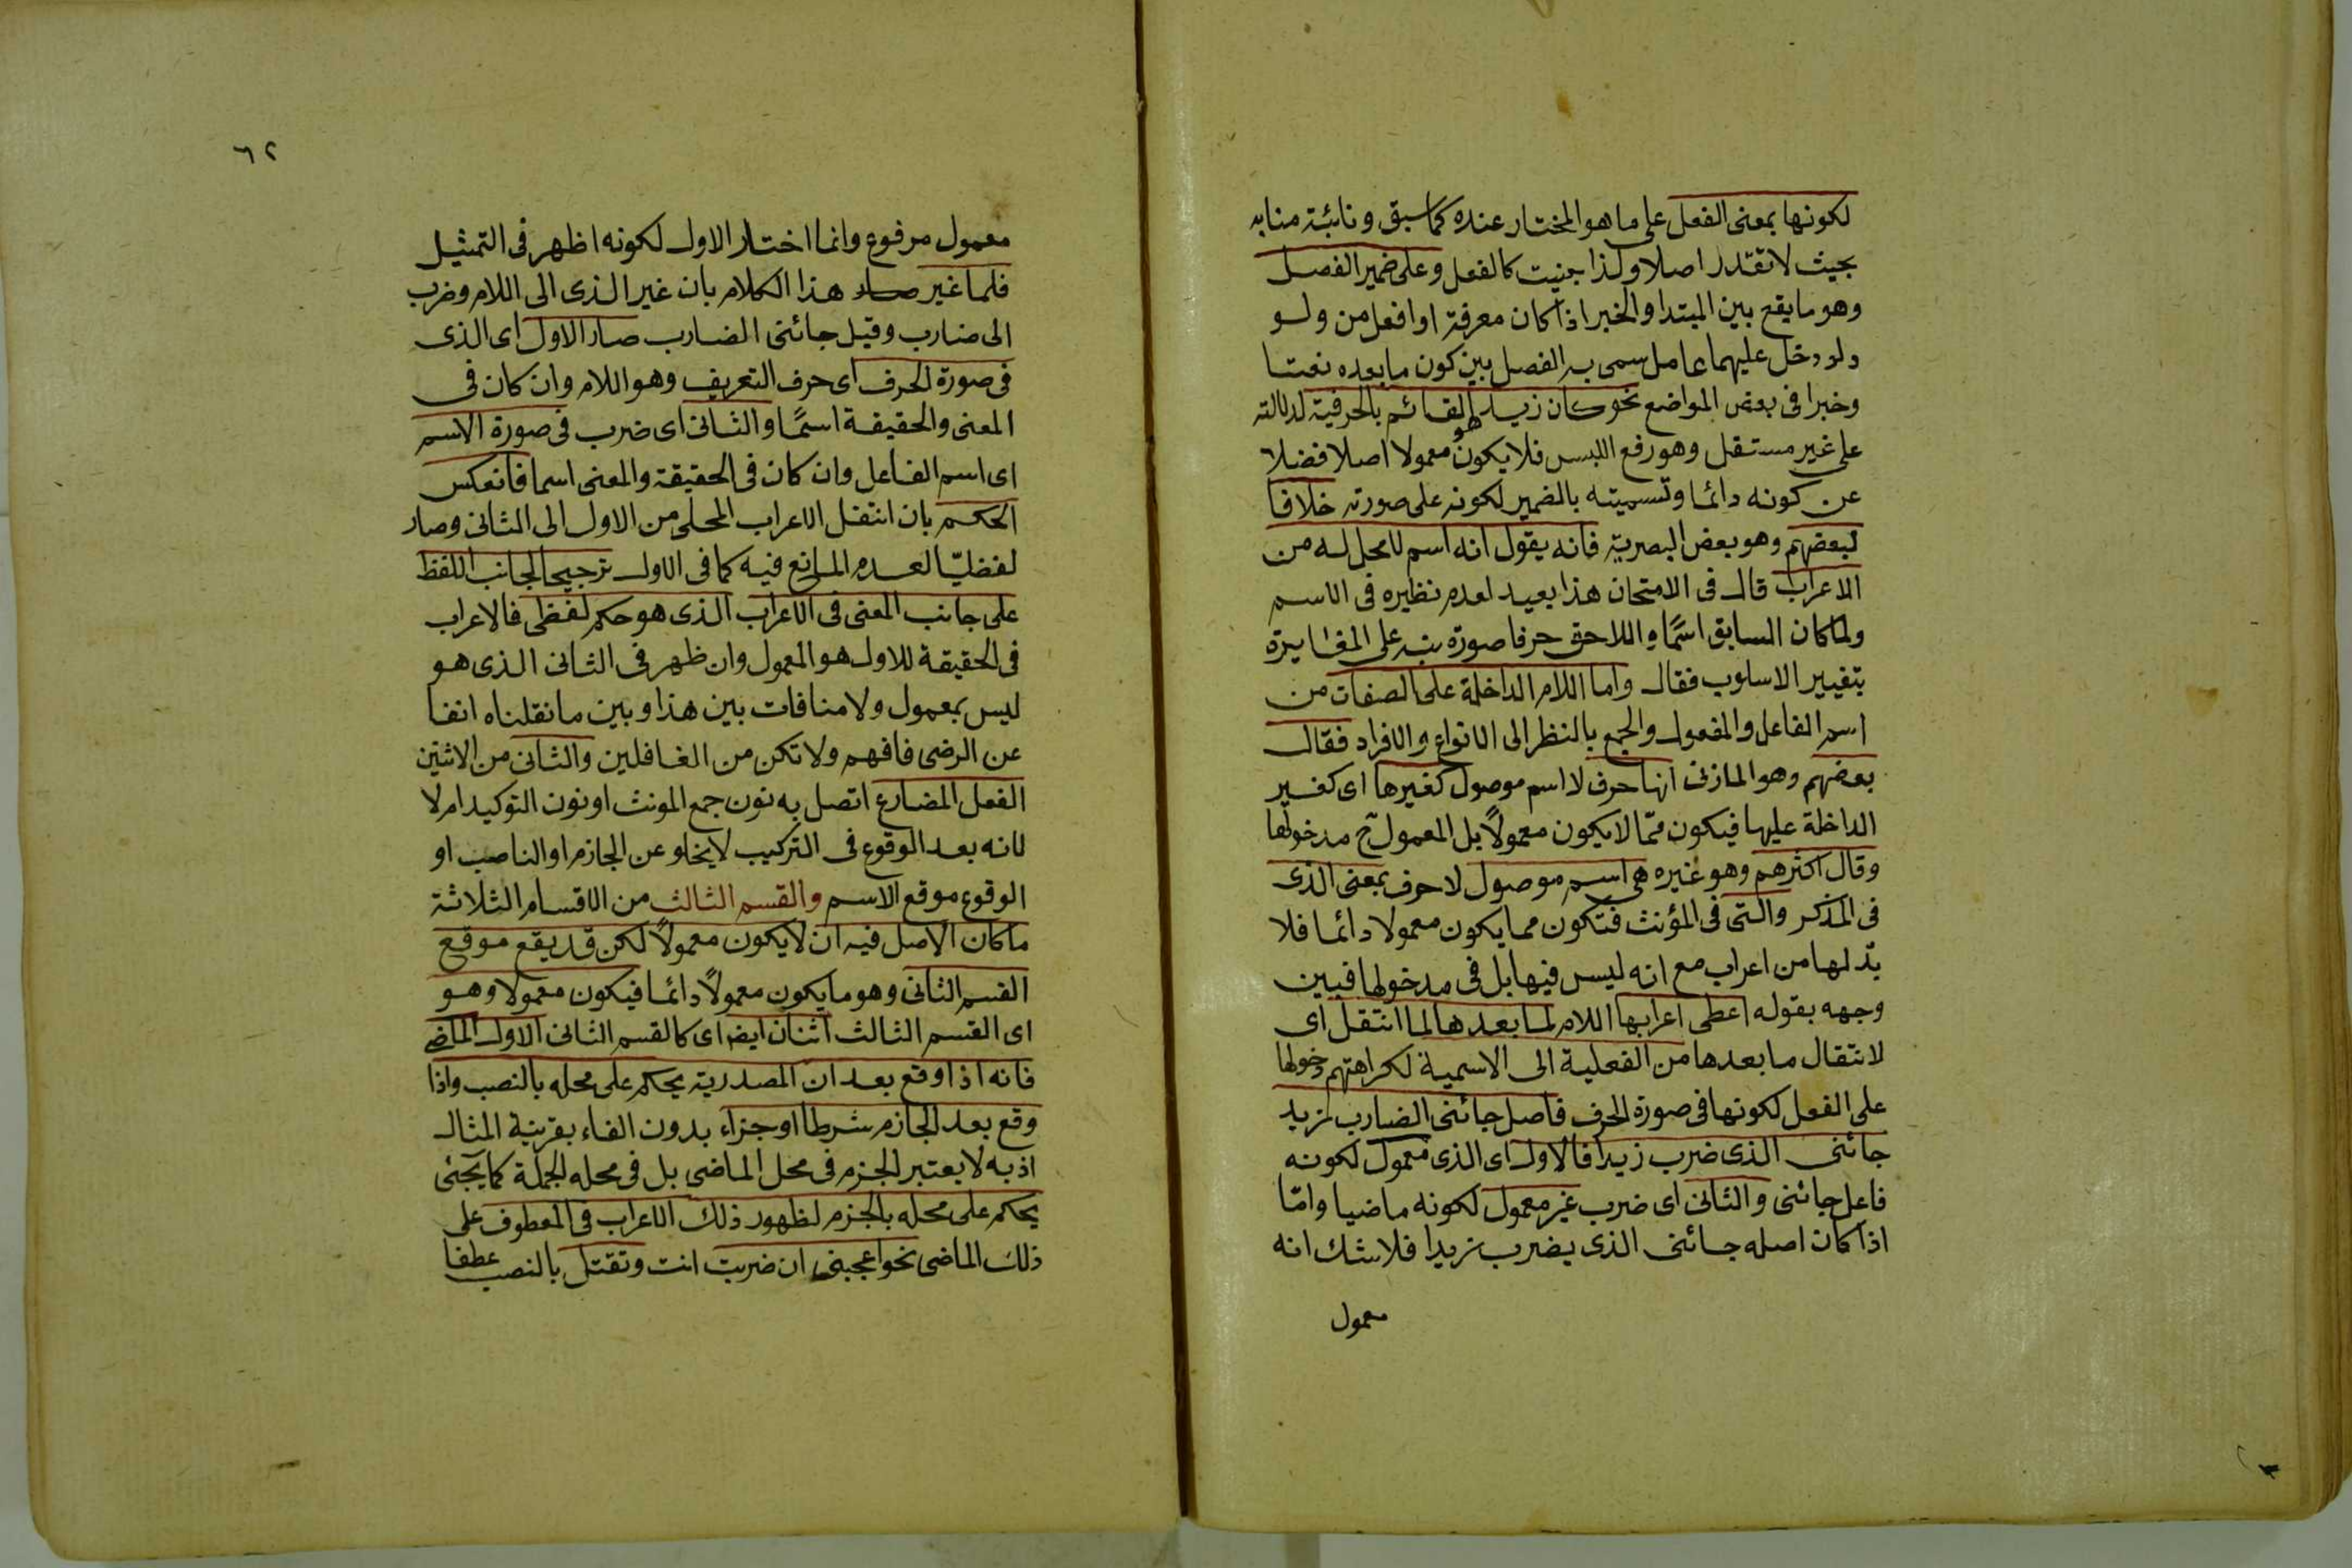 لكونها بمعنى الفعل على ما هو المختار عنده كما سبق ونائبة منابه
بحيث لا تقدر اصلا ولذا بنيت كالفعل وعلى ضمير الفصل
وهو ما يقع بين المبتدا والخبر اذا كان معرفة او افعل من ولو
ولو دخل عليهما عامل سمى به الفصل بين كون ما بعده نعتا
وخبرا فى بعض المواضع نحو كان زيد هو القائم بالحرفية لدلالته
على غير مستقل وهو رفع اللبس فلا يكون معمولا اصلا فضلا
عن كونه دائما وتسميته بالضمير لكونه على صورته خلافا
لبعضهم وهو بعض البصرية فانه يقول انه اسم لا محل له من
الاعراب قال فى الامتحان هذا بعيد لعدم نظيره فى الاسم
ولما كان السابق اسمًا واللاحق حرفا صورة نبه على المغايرة
بتغيير الاسلوب فقال واما اللام الداخلة على الصفات من
اسم الفاعل والمفعول والجمع بالنظر الى الانواع والافراد فقال
بعضهم وهو المازنى انها حرف لا اسم موصول كغيرها اى كغير
الداخلة عليها فيكون ممّا لا يكون معمولاً بل المعمول ح مدخولها
وقال اكثرهم وهو غيره هى اسم موصول لا حرف بمعنى الذى
فى المذكر والتى فى المؤنث فتكون مما يكون معمولا دائما فلا
بدّ لها من اعراب مع انه ليس فيها بل فى مدخولها فبين
وجهه بقوله اعطى اعرابها اللام لما بعدها لما انتقل اى
لانتقال ما بعدها من الفعلية الى الاسمية لكراهتهم دخولها
على الفعل لكونها فى صورة الحرف فاصل جائنى الضارب زيد
جائنى الذى ضرب زيدا فالاول اى الذى معمول لكونه
فاعل جائنى والثانى اى ضرب غير معمول لكونه ماضيا وامّا
اذا كان اصله جائنى الذى يضرب زيدا فلا شك انه
معمول
٦٢
معمول مرفوع وانما اختار الاول لكونه اظهر فى التمثيل
فلما غير هذا الكلام بان غير الذى الى اللام وضرب
الى ضارب وقيل جائنى الضارب صار الاول اى الذى
فى صورة الحرف اى حرف التعريف وهو اللام وان كان فى
المعنى والحقيقة اسمًا والثانى اى ضرب فى صورة الاسم
اى اسم الفاعل وان كان فى الحقيقة والمعنى اسما فانعكس
الحكم بان انتقل الاعراب المحلى من الاول الى الثانى وصار
لفظيّا لعدم المانع فيه كما فى الاول ترجيحا لجانب اللفظ
على جانب المعنى فى الاعراب الذى هو حكم لفظى فالاعراب
فى الحقيقة للاول هو المعمول وان ظهر فى الثانى الذى هو
ليس بمعمول ولا منافات بين هذا وبين ما نقلناه انفا
عن الرضى فافهم ولا تكن من الغافلين والثانى من الاثنين
الفعل المضارع اتصل به نون جمع المونث او نون التوكيد ام لا
لانه بعد الوقوع فى التركيب لا يخلو عن الجازم او الناصب او
الوقوع موقع الاسم والقسم الثالث من الاقسام الثلاثة
ما كان الاصل فيه ان لا يكون معمولاً لكن قد يقع موقع
القسم الثانى وهو ما يكون معمولاً دائما فيكون معمولا وهو
اى القسم الثالث اثنان ايضا اى كالقسم الثانى الاول الماضى
فانه اذا وقع بعد ان المصدرية يحكم على محله بالنصب واذا
وقع بعد الجازم شرطا او جزاء بدون الفاء بقرينة المثال
اذ به لا يعتبر الجزم فى محل الماضى بل فى محله الجملة كما يجئى
يحكم على محله بالجزم لظهور ذلك الاعراب فى المعطوف على
ذلك الماضى نحو اعجبنى ان ضربت انت وتقتل بالنصب عطفا